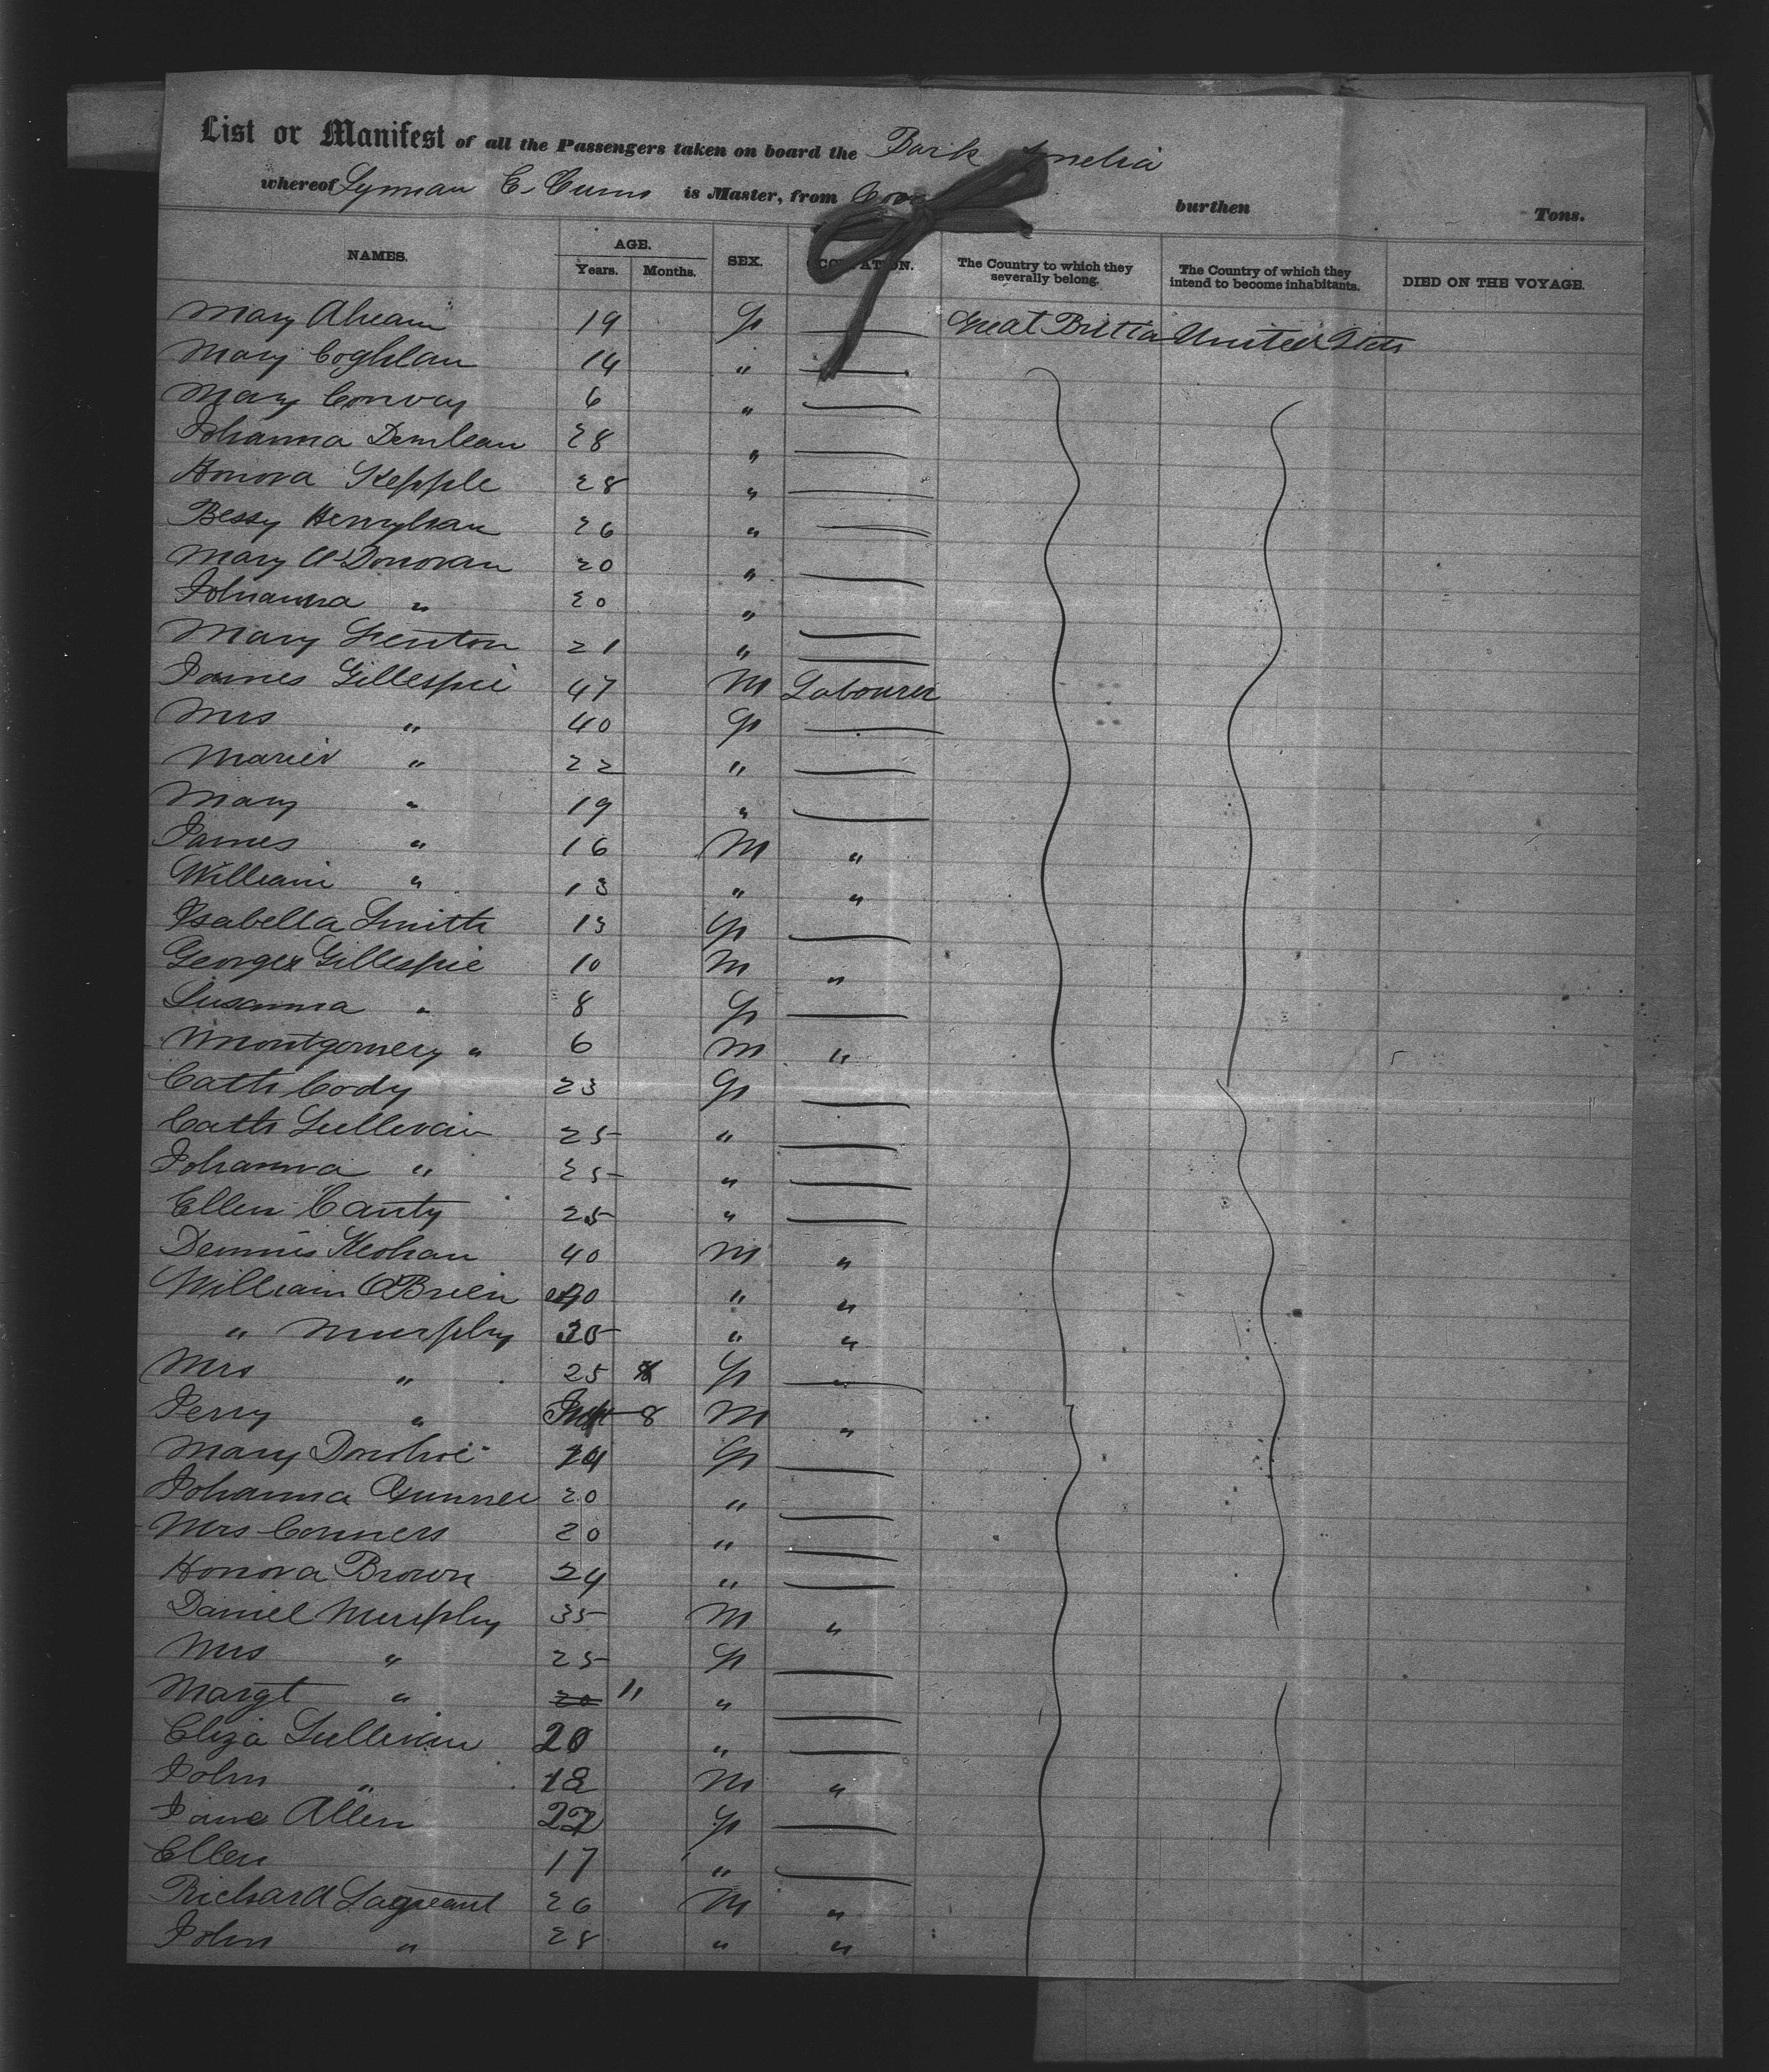 List or Manifest of all the Passengers taken on board the Bark
whereof Lyman C. is Master, from burthen Tons.
NAMES. AGE. Years. Months. SEX. The Country to which they severally belong. The Country of which they intend to become inhabitants. DIED ON THE VOYAGE.
Mary Ahearn 19 F Great Britta United States
Mary Coghlan 14 "
Mary Conway 6 "
Johanna 28 "
Honora Kepple 28 "
Bessy Henryhan 26 "
Mary O'Donovan 20 "
Johanna " 20 "
Mary Fenton 21 "
James Gillespie 47 M Labourer
Mrs " 40 F
" 22 "
Mary " 19 "
James " 16 M "
William " 13 " "
Isabella Smith 13 F
George Gillespie 10 M "
Susanna " 8 F
Montgomery " 6 M "
Cath Cody 23 F
Cath Sullivan 25 "
Johanna " 25 "
Ellen Canty 25 "
Dennis Keohan 40 M "
William O'Brien 40 " "
" Murphy 35 " "
Mrs " 25 F
" 8 M "
Mary Donohoe F
Johanna 20 "
Mrs Conners 20 "
Honora Brown 24 "
Daniel Murphy 35 M "
Mrs " 25 F
Margt " 20 11 "
Eliza Sullivan 20 "
John " 18 M "
Jane Allen 22 F
Ellen 17 "
Richard 26 M "
John " 28 " "